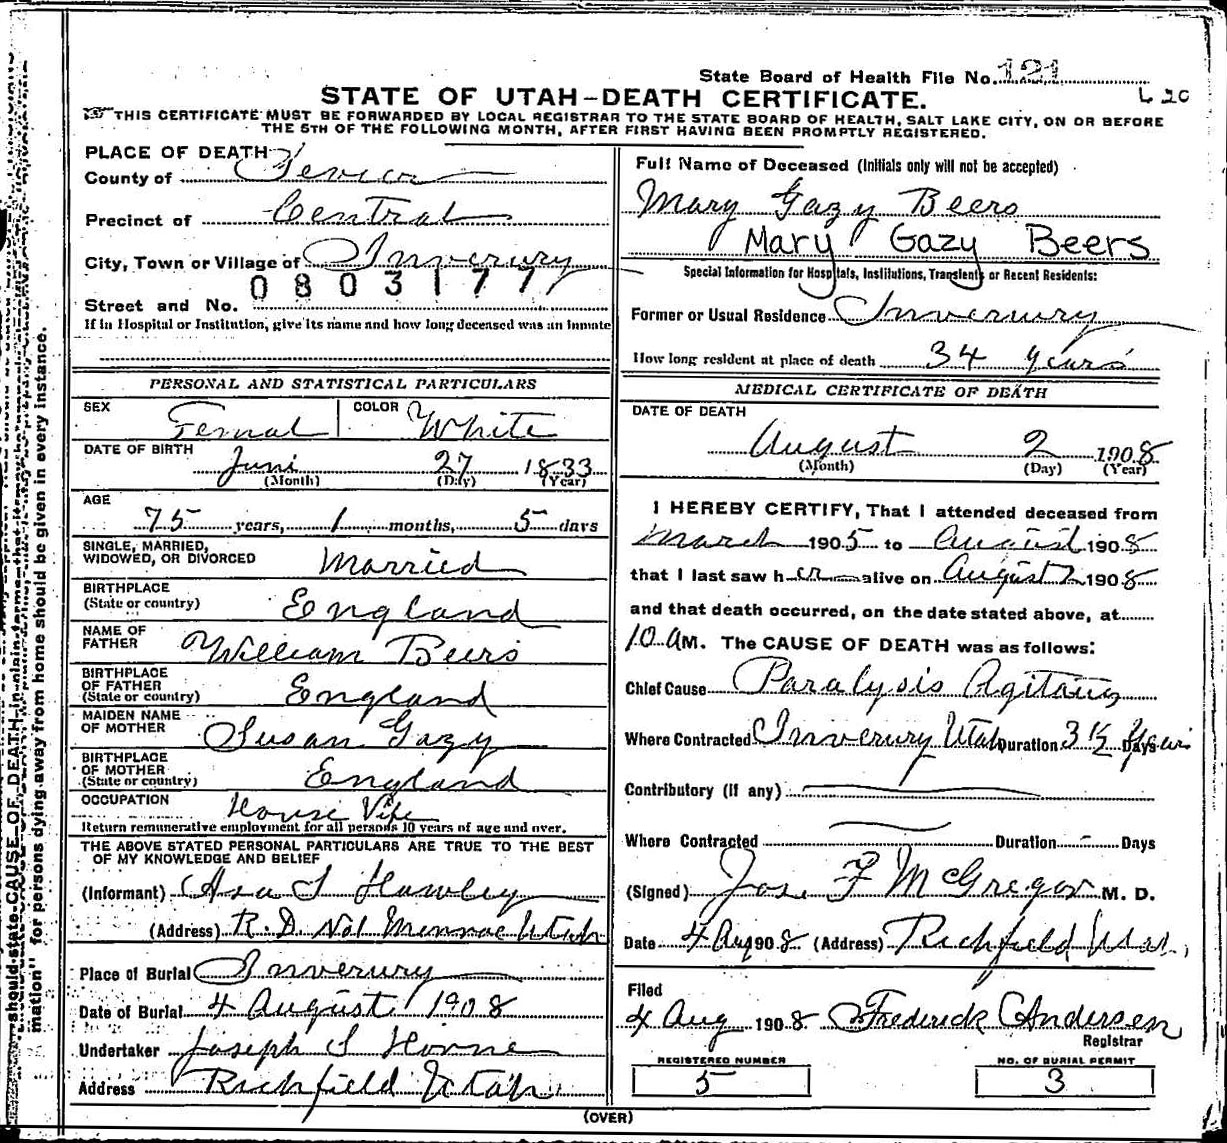 State Board of Health File No. 121
L 20
STATE OF UTAH-DEATH CERTIFICATE.
THIS CERTIFICATE MUST BE FORWARDED BY LOCAL REGISTRAR TO THE STATE BOARD OF HEALTH, SALT LAKE CITY, ON OR BEFORE
THE 5TH OF THE FOLLOWING MONTH, AFTER FIRST HAVING BEEN PROMPTLY REGISTERED.
PLACE OF DEATH
County of Sevier
Precinct of Central
City, Town or Village of Inverury
0803177
Street and No.
If in Hospital or Institution, give its name and how long deceased was an inmate
PERSONAL AND STATISTICAL PARTICULARS
SEX Femal COLOR White
DATE OF BIRTH
Juni 27 1833
(Month) (Day) (Year)
AGE
75 years, 1 months, 5 days
SINGLE, MARRIED,
WIDOWED, OR DIVORCED Married
BIRTHPLACE
(State or country) England
NAME OF
FATHER William Beers
BIRTHPLACE
OF FATHER
(State or country) England
MAIDEN NAME
OF MOTHER Susan Gazy
BIRTHPLACE
OF MOTHER
(State or country) England
OCCUPATION House Vife
Return remunerative employment for all persons 10 years of age and over.
THE ABOVE STATED PERSONAL PARTICULARS ARE TRUE TO THE BEST
OF MY KNOWLEDGE AND BELIEF
(Informant) Asa S Hawley
(Address) R. D. No1 Monroe Utah
Place of Burial Inverury
Date of Burial 4 August 1908
Undertaker Joseph S Horne
Address Richfield Utah
Full Name of Deceased (Initials only will not be accepted)
Mary Gazy Beers
Mary Gazy Beers
Special Information for Hospitals, Institutions, Transients or Recent Residents:
Former or Usual Residence Inverury
How long resident at place of death 34 years
MEDICAL CERTIFICATE OF DEATH
DATE OF DEATH
August 2 1908
(Month) (Day) (Year)
I HEREBY CERTIFY, That I attended deceased from
March 1905 to August 1908
that I last saw her alive on August 2 1908
and that death occurred, on the date stated above, at
10 AM. The CAUSE OF DEATH was as follows:
Chief Cause Paralysis Agitans
Where Contracted Inverury Utah Duration 3 1/2 Days Years
Contributory (if any)
Where Contracted Duration - Days
(Signed) Jos. F McGregor M. D.
Date 4 Aug 1908 (Address) Richfield Utah,
Filed
4 Aug 1908 Frederick Andersen
Registrar
REGISTERED NUMBER
5
NO. OF BURIAL PERMIT
3
(OVER)
should state CAUSE OF DEATH in plain terms
mation" for persons dying away from home should be given in every instance.